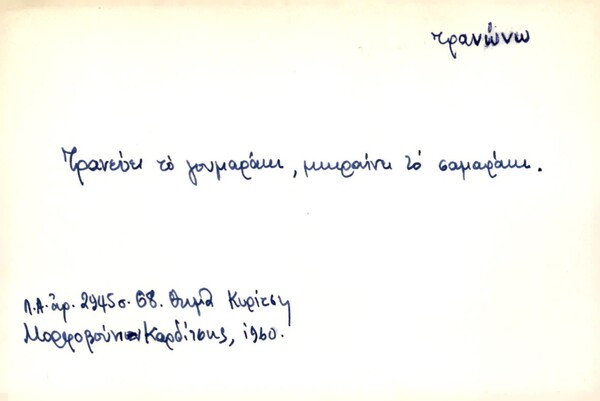 τρανώνω
Τρανεύει τὸ γουμαράκι, μικραίνει τὸ σαμαράκι.
Λ.Α. ἀρ. 2945 σ. 68. Θωμᾶ Κυρίτση
Μορφοβούνι Καρδίτσης, 1960.